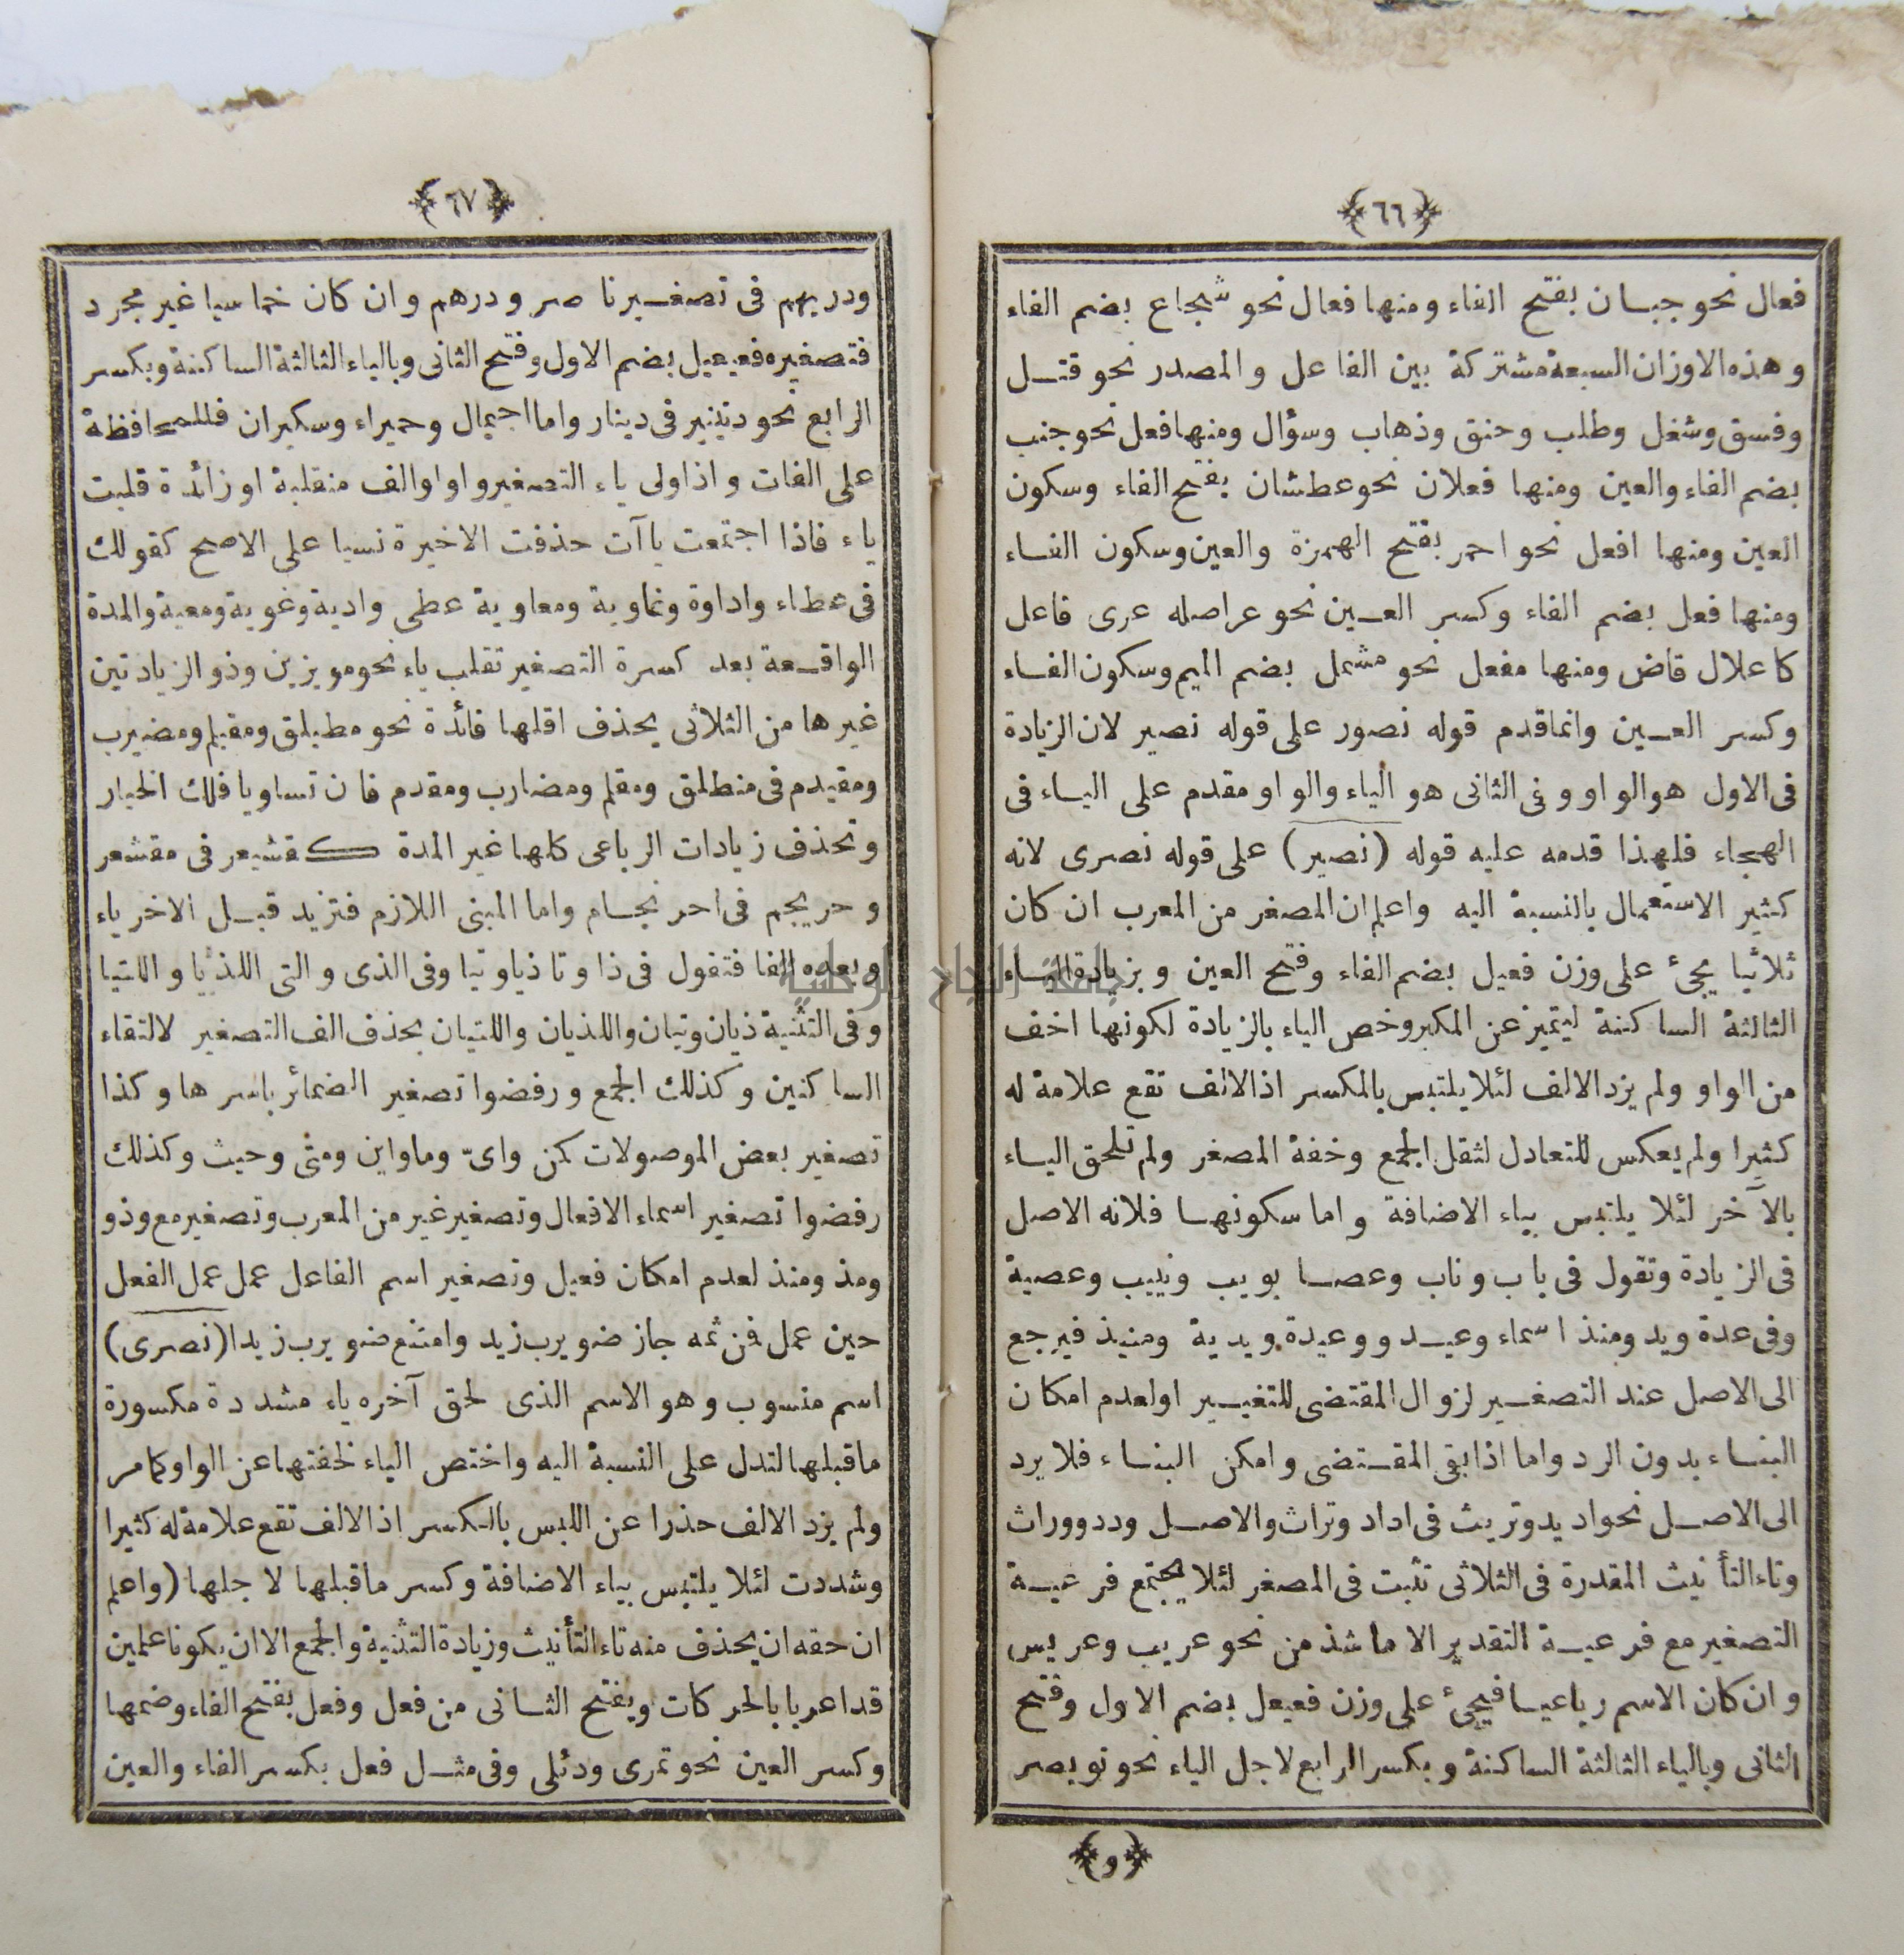 ﴿٦٦﴾
فعال نحو جبان بفتح الفاء ومنها فعال نحو شجاع بضم الفاء
وهذه الاوزان السبعة مشتركة بين الفاعل والمصدر نحو قتل
وفسق وشغل وطلب وحنق وذهاب وسؤال ومنها فعل نحو جنب
بضم الفاء والعين ومنها فعلان نحو عطشان بفتح الفاء وسكون
العين ومنها افعل نحو احمر بفتح الهمزة والعين وسكون الفاء
ومنها فعل بضم الفاء وكسر العين نحو عر اصله عرى فاعل
كاعلال قاض ومنها مفعل نحو مشمل بضم الميم وسكون الفاء
وكسر العين وانما قدم قوله نصور على قوله نصير لان الزيادة
فى الاول هو الواو وفى الثانى هو الياء والواو مقدم على الياء فى
الهجاء فلهذا قدمه عليه قوله (نصير) على قوله نصرى لانه
كثير الاستعمال بالنسبة اليه واعلم ان المصغر من المعرب ان كان
ثلاثيا يجئ على وزن فعيل بضم الفاء وفتح العين وبزيادة الياء
الثالثة الساكنة ليتميز عن المكبر وخص الياء بالزيادة لكونها اخف
من الواو ولم يزد الالف لئلا يلتبس بالمكسر اذ الالف تقع علامة له
كثيرا ولم يعكس للتعادل لثقل الجمع وخفة المصغر ولم تلحق الياء
بالآخر لئلا يلتبس بياء الاضافة واما سكونها فلانه الاصل
فى الزيادة وتقول فى باب وناب وعصا بويب ونييب وعصية
وفى عدة ويد ومنذ اسماء وعيد ووعيدة ويدية ومنيذ فيرجع
الى الاصل عند التصغير لزوال المقتضى للتغيير او لعدم امكان
البناء بدون الرد واما اذا بقى المقتضى وامكن البناء فلا يرد
الى الاصل نحو اديد وتريث فى اداد وتراث والاصل ودد ووراث
وتاء التأنيث المقدرة فى الثلاثى تثبت فى المصغر لئلا يجتمع فرعية
التصغير مع فرعية التقدير الا ما شذ من نحو عريب وعريس
وان كان الاسم رباعيا فيجئ على وزن فعيعل بضم الاول وفتح
الثانى وبالياء الثالثة الساكنة وبكسر الرابع لاجل الياء نحو نويصر
﴿و﴾
﴿٦٧﴾
ودريهم فى تصغير ناصر ودرهم وان كان خماسيا غير مجرد
فتصغيره فعيعيل بضم الاول وفتح الثانى وبالياء الثالثة الساكنة وبكسر
الرابع نحو دنينير فى دينار واما اجيمال وحميراء وسكيران فللمحافظة
على الفات واذا ولى ياء التصغير واو او الف منقلبة او زائدة قلبت
ياء فاذا اجتمعت ياآت حذفت الاخيرة نسيا على الاصح كقولك
فى عطاء واداوة وغاوية ومعاوية عطى وادية وغوية ومعية والمدة
الواقعة بعد كسرة التصغير تقلب ياء نحو مويزين وذو الزيادتين
غيرها من الثلاثى يحذف اقلها فائدة نحو مطيلق ومقيلم ومضيرب
ومقيدم فى منطلق ومقلم ومضارب ومقدم فان تساويا فلك الخيار
وتحذف زيادات الرباعى كلها غير المدة كقشيعر فى مقشعر
وحريجم فى احرنجام واما المبنى اللازم فتزيد قبل الاخر ياء
وبعده الفا فتقول فى ذا وتا ذيا وتيا وفى الذى والتى اللذيا واللتيا
وفى التثنية ذيان وتيان واللذيان واللتيان بحذف الف التصغير لالتقاء
الساكنين وكذلك الجمع ورفضوا تصغير الضمائر باسرها وكذا
تصغير بعض الموصولات كمن واىّ وما واين ومتى وحيث وكذلك
رفضوا تصغير اسماء الافعال وتصغير غير من المعرب وتصغير مع وذو
ومذ ومنذ لعدم امكان فعيل وتصغير اسم الفاعل عمل عمل الفعل
حين عمل فمن ثمه جاز ضويرب زيد وامتنع ضويرب زيدا (نصرى)
اسم منسوب وهو الاسم الذى لحق آخره ياء مشددة مكسورة
ما قبلها لتدل على النسبة اليه واختص الياء لخفتها عن الواو كما مر
ولم يزد الالف حذرا عن اللبس بالمكسر اذ الالف تقع علامة له كثيرا
وشددت لئلا يلتبس بياء الاضافة وكسر ما قبلها لاجلها (واعلم
ان حقه ان يحذف منه تاء التأنيث وزيادة التثنية والجمع الا ان يكونا علمين
قد اعربا بالحركات ويفتح الثانى من فعل وفعل بفتح الفاء وضمها
وكسر العين نحو تمرى ودئلى وفى مثل فعل بكسر الفاء والعين
جامعة النجاح الوطنية